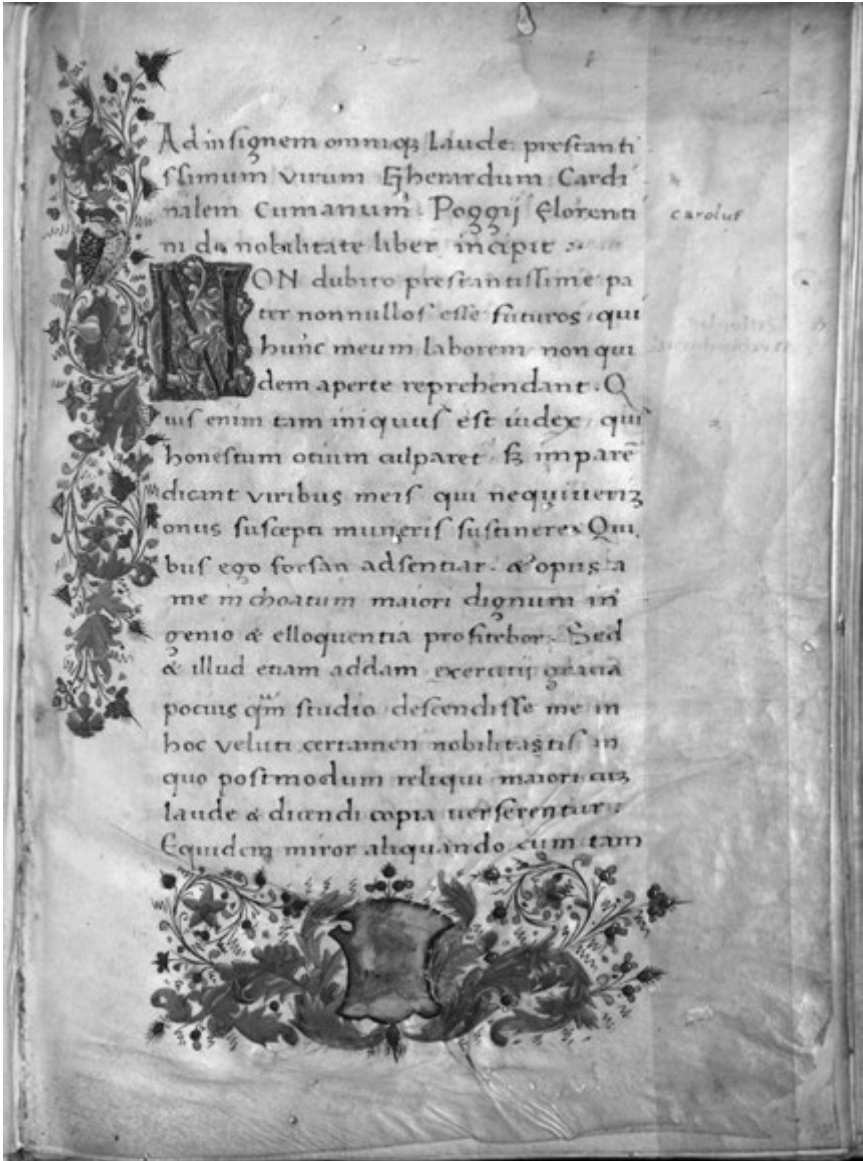 Ad insignem omniqꝫ laude prestanti
ssimum virum Gherardum Cardi
nalem Cumanum Poggij Florenti
carolus
ni de nobilitate liber incipit
NON dubito prestantissime pa
ter nonnullos esse futuros qui
hunc meum laborem non qui
dem aperte reprehendant. Q
uis enim tam iniquus est iudex, qui
honestum otium culparet. sꝫ imparē
dicant viribus meis qui nequiuerĩ
onus suscepti muneris sustinere. Qui
bus ego forsan adsentiar. & opus a
me inchoatum maiori dignum in
genio & elloquentia profitebor. Sed
& illud etiam addam exercitij gracia
pocius qm̃ studio descendisse me in
hoc veluti certamen nobilitatis in
quo postmodum reliqui maiori cuꝫ
laude & dicendi copia uerserentur.
Equidem miror aliquando cum tam